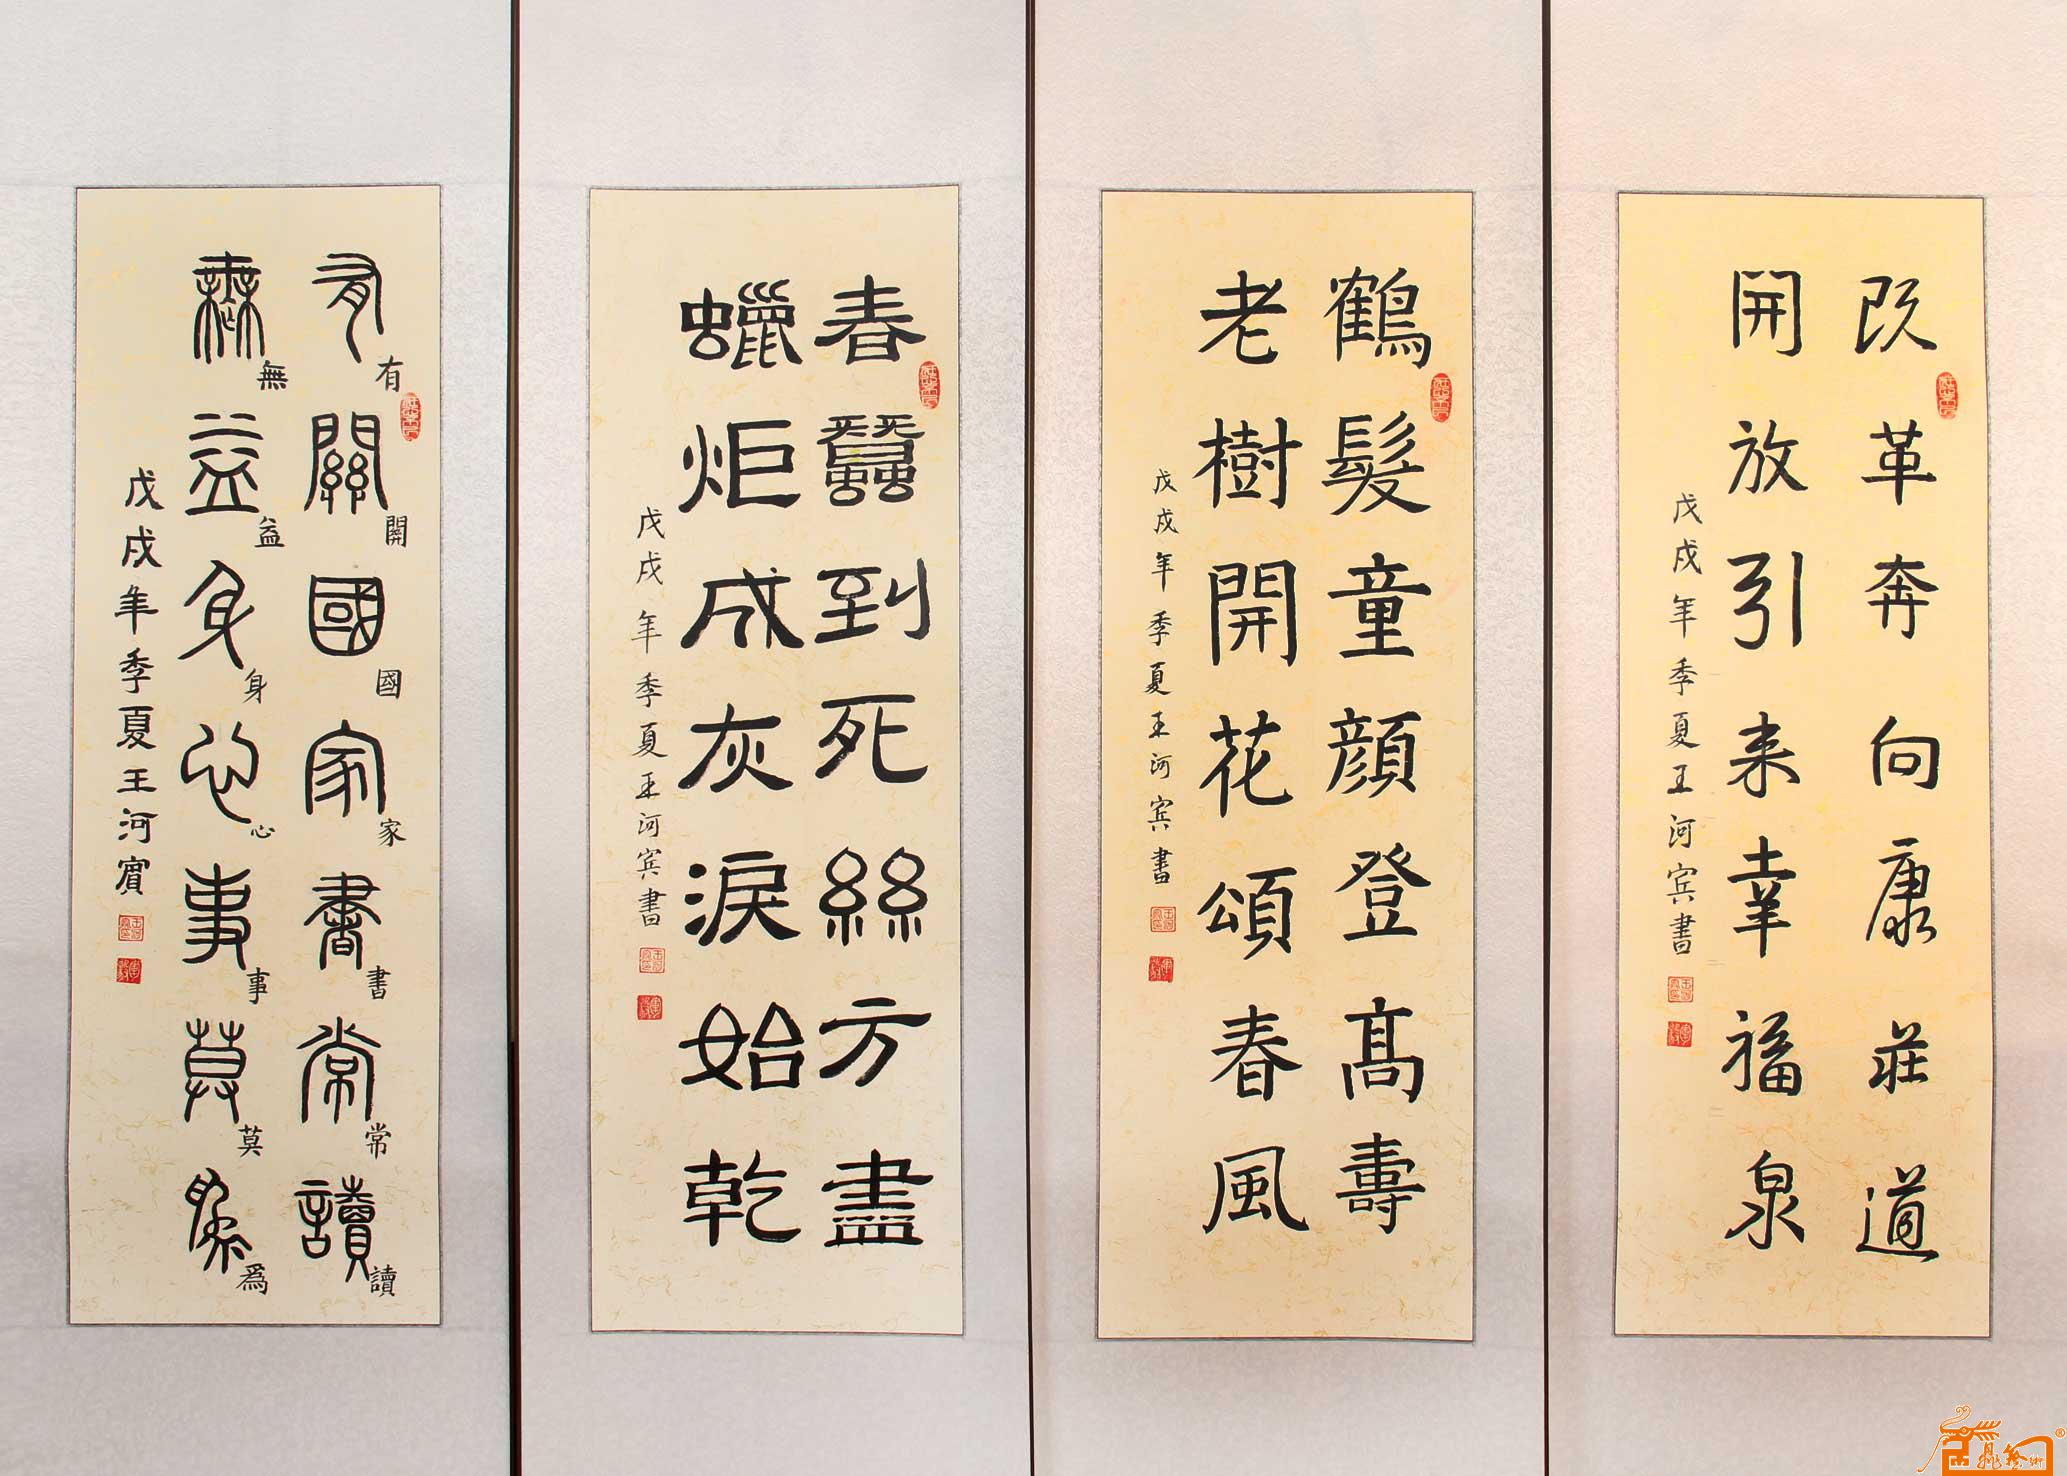 改革奔向康莊道
開放引来幸福泉
戊戌年季夏王河宾書
鶴髮童顔登高壽
老樹開花頌春風
戊戌年季夏王河宾書
春蠶到死絲方盡
蠟炬成灰淚始乾
戊戌年季夏王河宾書
有關國家書常讀
有開國家書常讀
無益身心事莫為
無益身心事莫爲
戊戌年季夏王河賓